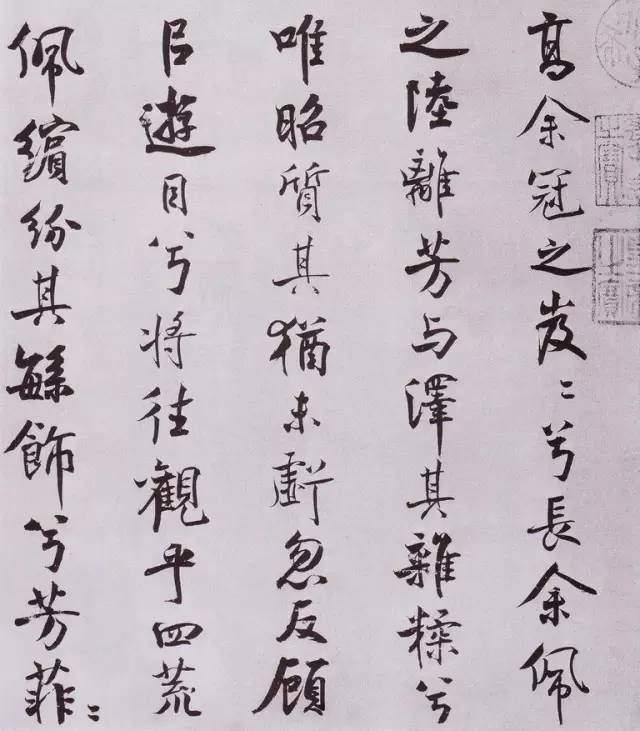 高余冠之岌〻兮長余佩
之陸離芳与澤其雜糅兮
唯昭質其猶未虧忽反顧
㠯遊目兮将往觀乎四荒
佩繽紛其繇飾兮芳菲〻